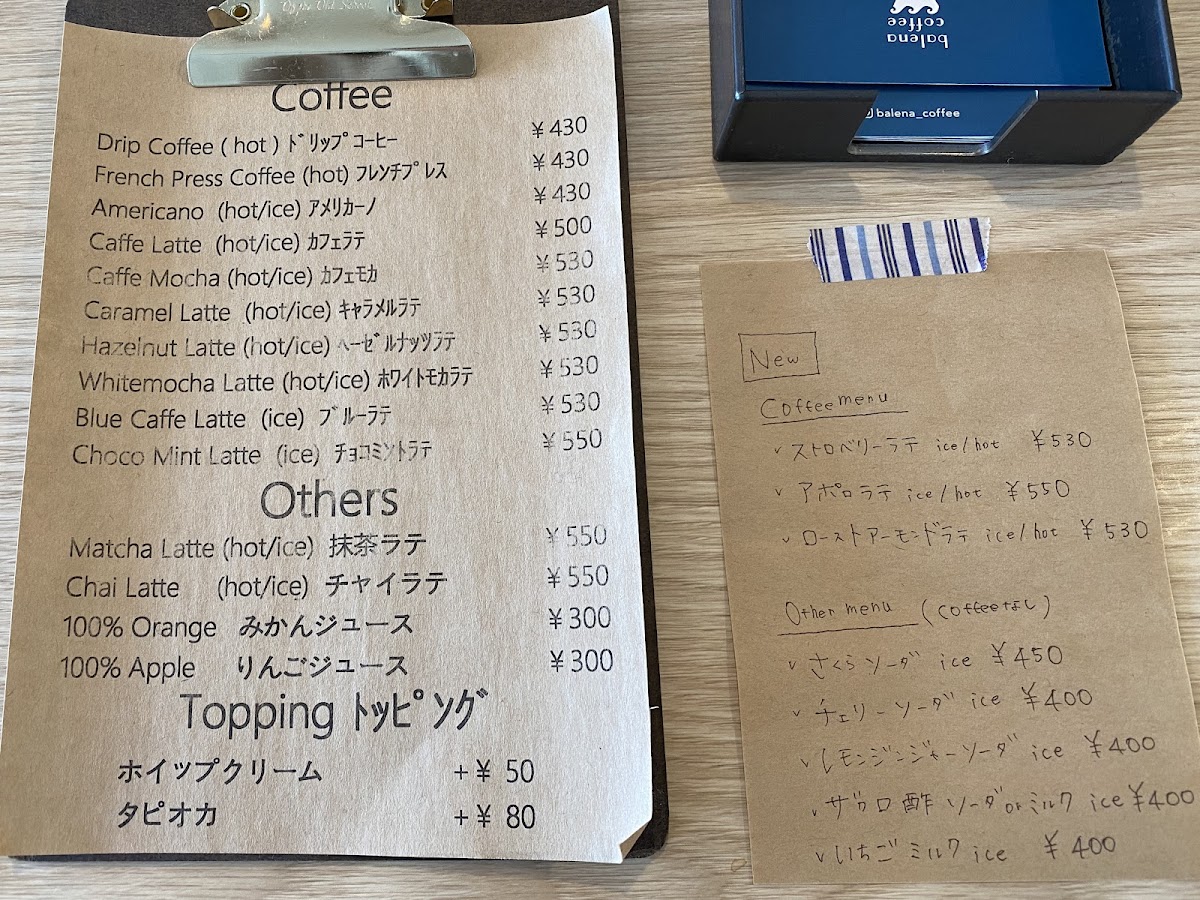 Coffee
Drip Coffee ( hot ) ﾄﾞﾘｯﾌﾟ ｺｰﾋｰ ¥430
French Press Coffee (hot) ﾌﾚﾝﾁﾌﾟﾚｽ ¥430
Americano (hot/ice) ｱﾒﾘｶｰﾉ ¥430
Caffe Latte (hot/ice) ｶﾌｪﾗﾃ ¥500
Caffe Mocha (hot/ice) ｶﾌｪﾓｶ ¥530
Caramel Latte (hot/ice) ｷｬﾗﾒﾙﾗﾃ ¥530
Hazelnut Latte (hot/ice) ﾍｰｾﾞﾙﾅｯﾂﾗﾃ ¥530
Whitemocha Latte (hot/ice) ﾎﾜｲﾄﾓｶﾗﾃ ¥530
Blue Caffe Latte (ice) ﾌﾞﾙｰﾗﾃ ¥530
Choco Mint Latte (ice) ﾁｮｺﾐﾝﾄﾗﾃ ¥550
Others
Matcha Latte (hot/ice) 抹茶ラテ ¥550
Chai Latte (hot/ice) チャイラテ ¥550
100% Orange みかんジュース ¥300
100% Apple りんごジュース ¥300
Topping ﾄｯﾋﾟﾝｸﾞ
ホイップクリーム +¥ 50
タピオカ +¥ 80
balena
coffee
balena_coffee
New
Coffee menu
✓ ストロベリーラテ ice/hot ¥530
✓ アポロラテ ice/hot ¥550
✓ ローストアーモンドラテ ice/hot ¥530
Other menu (coffeeなし)
✓ さくらソーダ ice ¥450
✓ チェリーソーダ ice ¥400
✓ レモンジンジャーソーダ ice ¥400
✓ ザクロ酢 ソーダorミルク ice ¥400
✓ いちごミルク ice ¥400